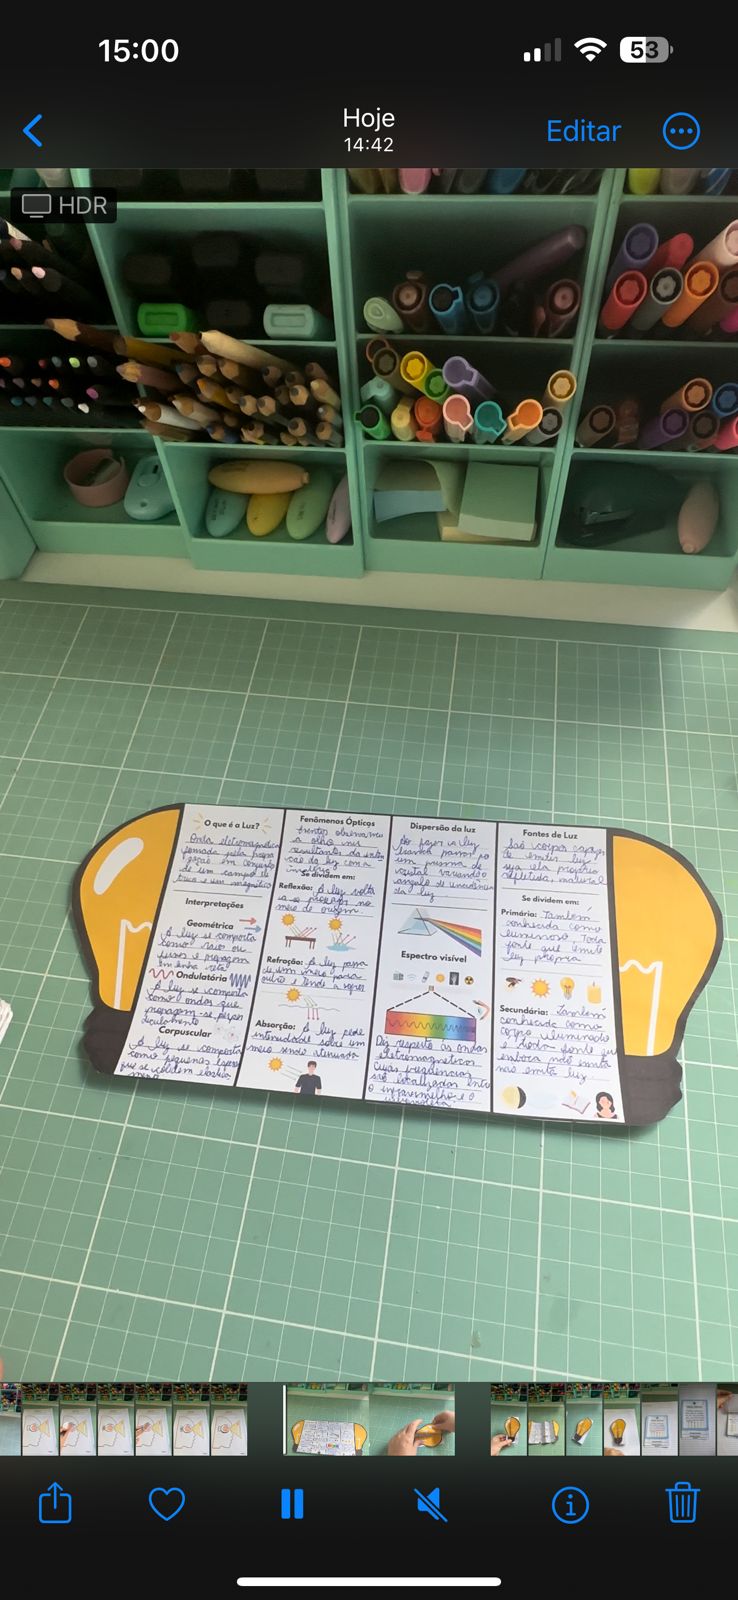 15:00
53
Hoje
14:42
Editar
HDR
O que é a Luz?
Onda eletromagnética
formada pela propa
gação em conjunto
de um campo elé
trico e um magnético
Interpretações
Geométrica
A luz se comporta
como raios ou
e propagam
em linha reta
Ondulatória
A luz se comporta
como ondas que
propagam-se perpen
dicularmente
Corpuscular
A luz se comporta
como pequenos corpos
que se colidem
Fenômenos Ópticos
Eventos observáveis
a olho nu
resultantes da inte
ração da luz com a
Se dividem em:
Reflexão: A luz volta
a se propagar no
meio de origem
Refração: A luz passa
de um meio para
outro e tende a
Absorção: A luz perde
intensidade sobre um
meio sendo atenuada
Dispersão da luz
Ao fazer a luz
branca passar por
um prisma de
cristal variando
ângulo de incidência
da luz
Espectro visível
Diz respeito às ondas
eletromagnéticas
cujas frequências
são localizadas entre
o infravermelho e o
ultravioleta
Fontes de Luz
São corpos capazes
de emitir luz
seja ela própria
refletida, natural
Se dividem em:
Primária: Também
conhecida como
luminoso. Toda
fonte que emite
luz própria
Secundária: Também
conhecida como
corpo iluminado
é toda fonte que
embora não emita
não emita luz